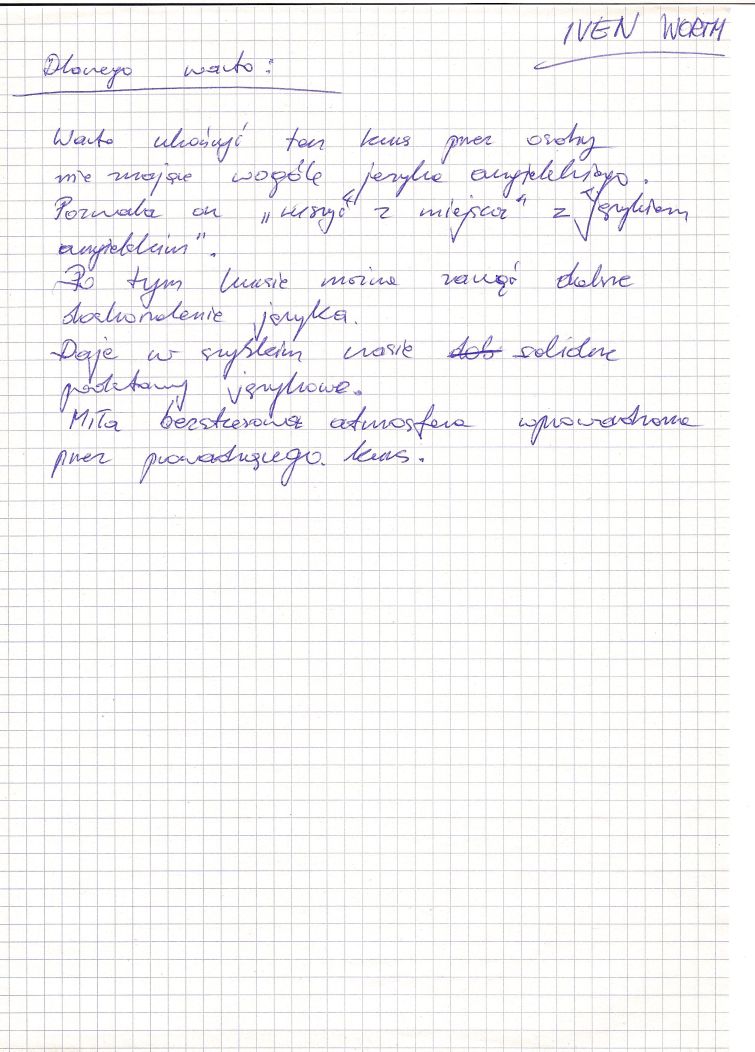 IVEN WORTH
Dlaczego warto:
Warto ukończyć ten kurs przez osoby
nie znające wogóle języka angielskiego.
Pozwala on „ruszyć" z miejsca" z językiem
angielskim".
Po tym kursie można zacząć dalsze
doskonalenie języka.
Daje w szybkim czasie dob solidne
podstawy językowe.
Miła bezstresowa atmosfera wprowadzona
przez prowadzącego kurs.